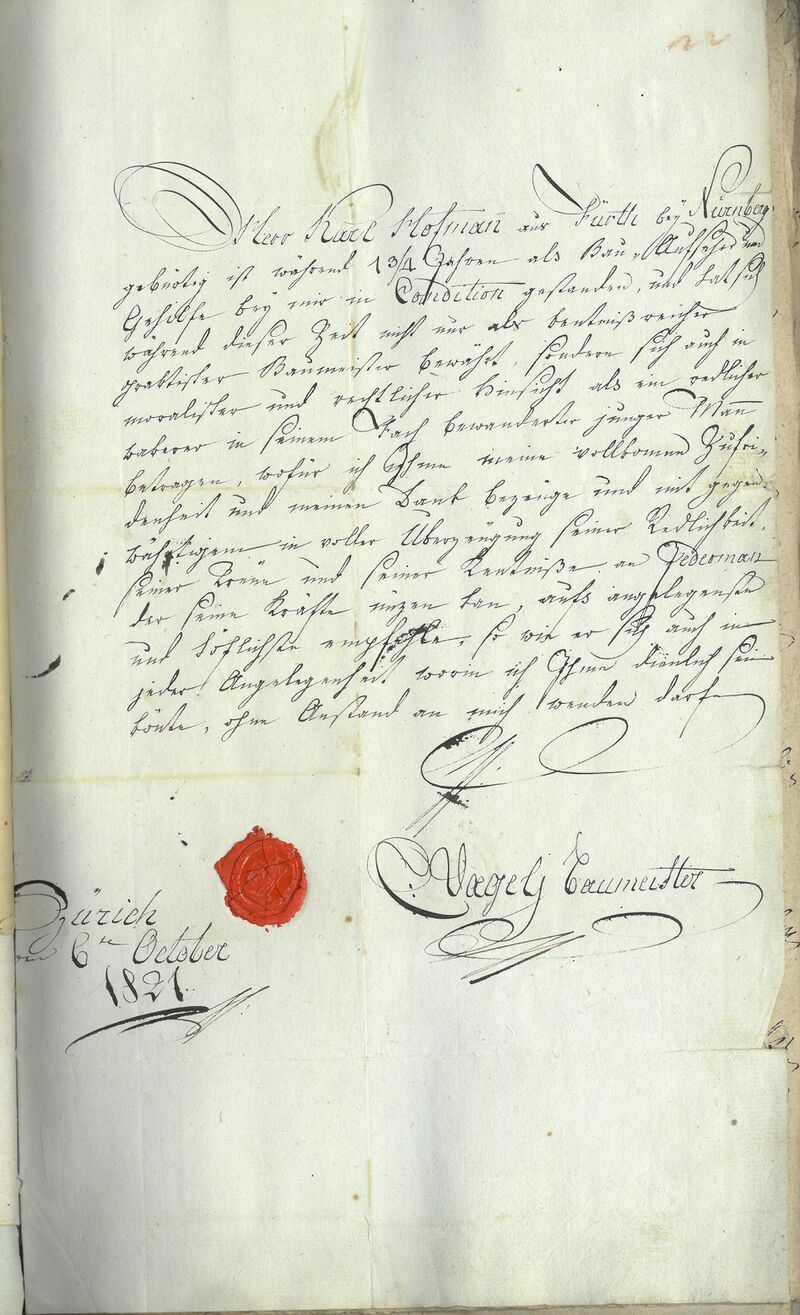 Herr Karl Hofman̄ aus Fürth bey Nürnberg
gebürtig ist während 1 3/4 Jahren als Bau-Aufseher und
Gehilfe bey mir in Condition gestanden, und hat sich
während dieser Zeit nicht nur als kentnißreicher
praktischer Baumeister bewährt, sondern sich auch in
moralischer und rechtlicher Hinsicht als ein redlicher
wakerer in seinem Fach bewanderter junger Man̄
betragen, wofür ich Ihme meine vollkomne Zufri-
denheit und meinen Dank bezeüge und mit gegen-
wärtigem in voller Überzeügung seiner Redlichkeit,
seiner Treüe und seiner Kentniße an Jederman
der seine Kräfte nüzen kan, aufs angelegenste
und höflichste empfehle, so wie er sich auch in
jeder Angelegenheit worin ich Ihme dienlich sein
könte, ohne Anstand an mich wenden darf
Vœgelj Baumeister
Zürich
den 6ten October
1821.